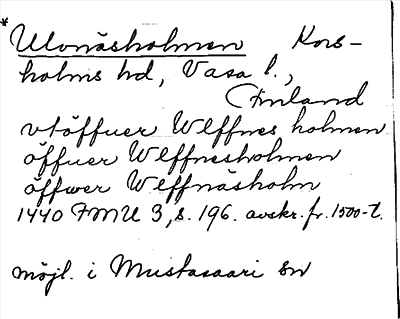 * Ulvnäsholmen Kors-
holms hd, Vasa l.,
Finland
vtöffuer Wlffnes holmen
öffuer Wlffnesholmen
öffwer Wlffnäsholm
1440 FMU 3, s. 196. avskr. fr. 1500-t.
möjl. i Mustasaari sn